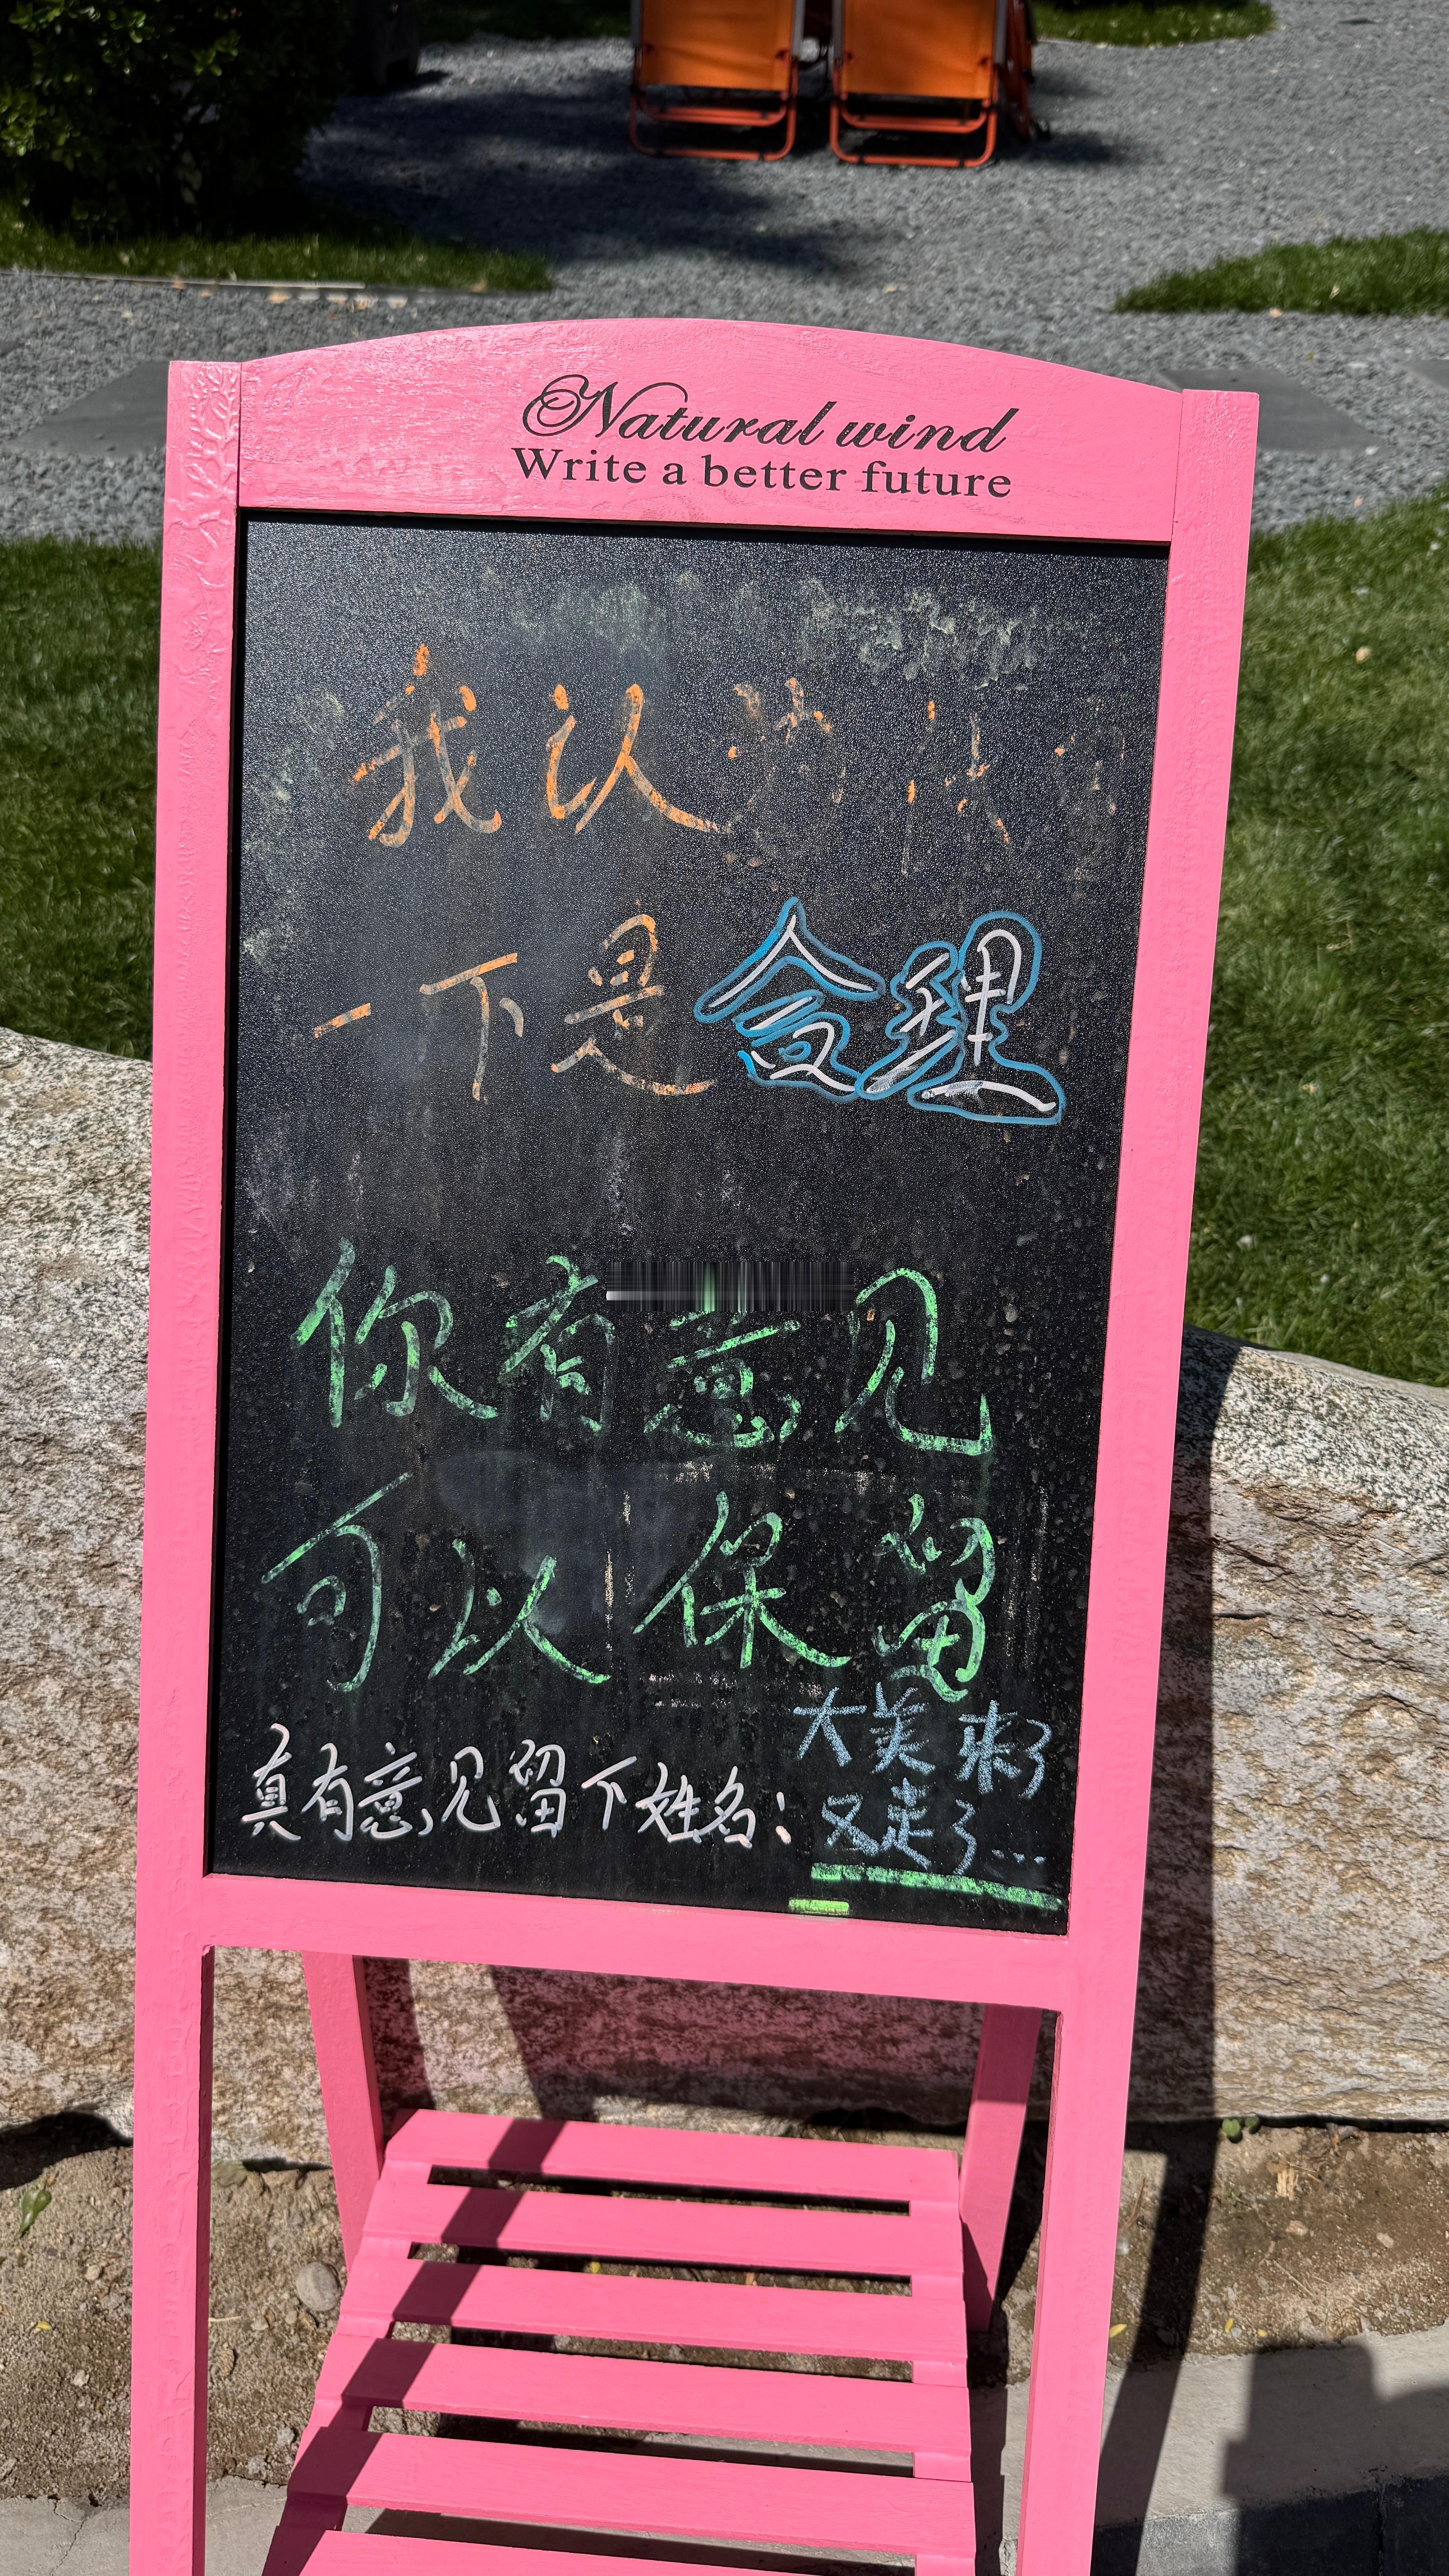 Natural wind
Write a better future
我认为
一下是合理
你有意见
可以保留
大美来了
又走了…
真有意见留下姓名：